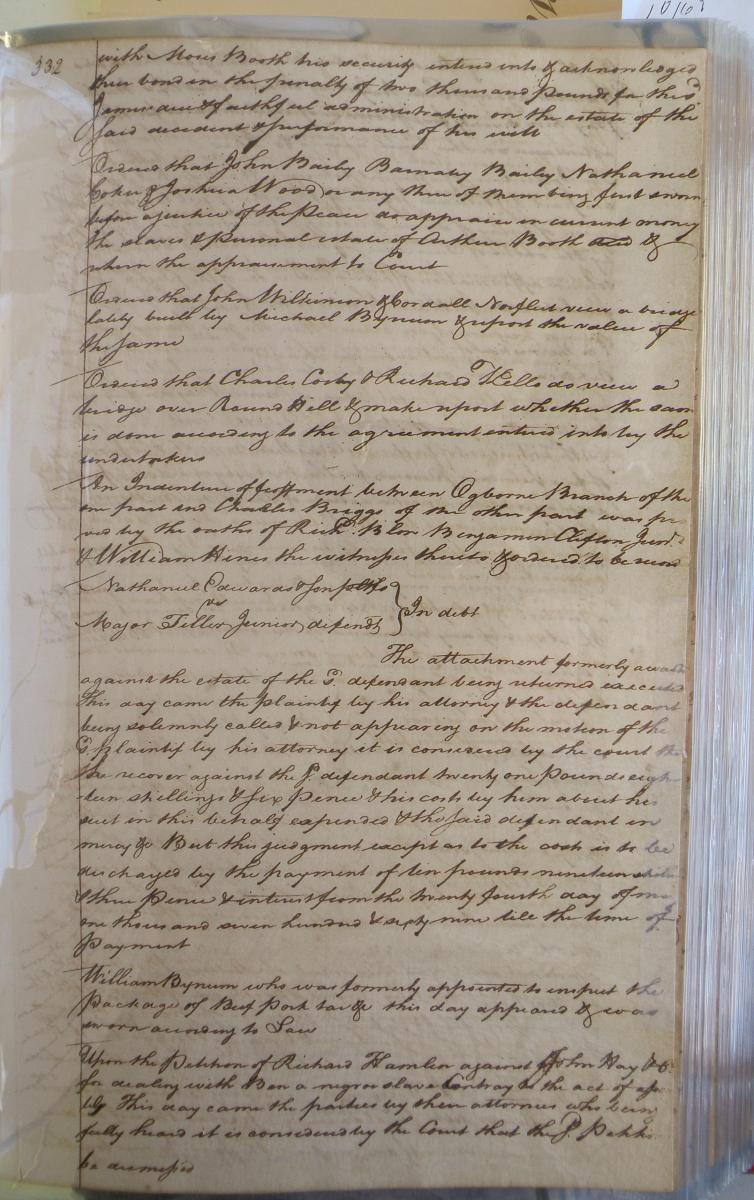 332
with Moses Booth his security entered into & acknowledged
their bond in the penalty of two thousand pounds for the sd
James due & faithful administration on the estate of the
said decedent & performance of his will
Ordered that John Baily Barnaby Bailey Nathaniel
Coker & Joshua Wood or any three of them being first sworn
before a justice of the Peace do appraise in current money
the slaves & personal estate of Arthur Booth decd &
return the appraisement to Court
Ordered that John Wilkinson & Cordall Norfleet view a bridge
lately built by Michael Bynum & report the value of
the same
Ordered that Charles Cosby & Richard Wells do view a
bridge over Round Hill & make report whether the same
is done according to the agreement entered into by the
undertakers
An Indenture of feoffment between Ogborne Branch of the
one part and Charles Briggs of the other part was pro
ved by the oaths of Richd. Blow Benjamin Clifton Junr.
& William Hines the witnesses thereto & ordered to be recor
Nathaniel Edwards & son
vs
Major Teller Junior defendt } In debt
The attachment formerly award
against the estate of the sd. defendant being returned executed
This day came the plaintif by his attorney & the defendant
being solemnly called & not appearing on the motion of the
sd. plaintif by his attorney it is considered by the court tht
the recover against the sd. defendant twenty one Pounds eigh
teen shillings & six Pence & his costs by him about his
suit in this behalf expended & the said defendant in
mercy &c But this judgment except as to the costs is to be
discharged by the payment of ten pounds nineteen
& three Pence & interest from the twenty fourth day of
one thousand seven hundred & sixty nine till the time of
Payment
William Bynum who was formerly appointed to inspect the
Package of Beef Pork tar &c this day appeared & was
sworn according to Law
Upon the Petition of Richard Hamlin against John Hay & C
for dealing with Ben a negroe slave Contrary to the act of
This day came the parties by their attornies who being
fully heard it is considered by the Court that the sd. Petiti
be dismissed